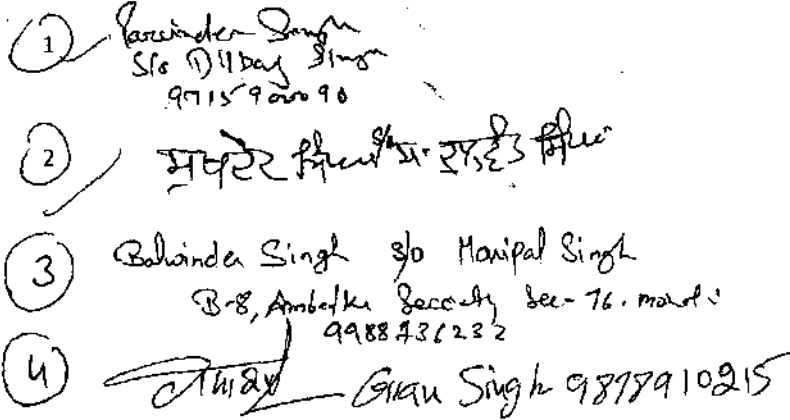 1 Parwinder Singh
S/o Dilbag Singh
9715900090
2 ਸੁਖਦੇਵ ਸਿੰਘ S/o ਸ. ਸਿੰਘ
3 Balwinder Singh S/o Monipal Singh
B-8, Ambedkar Society Sec-76. mohali
9988736232
4 Gian Singh 9878910215